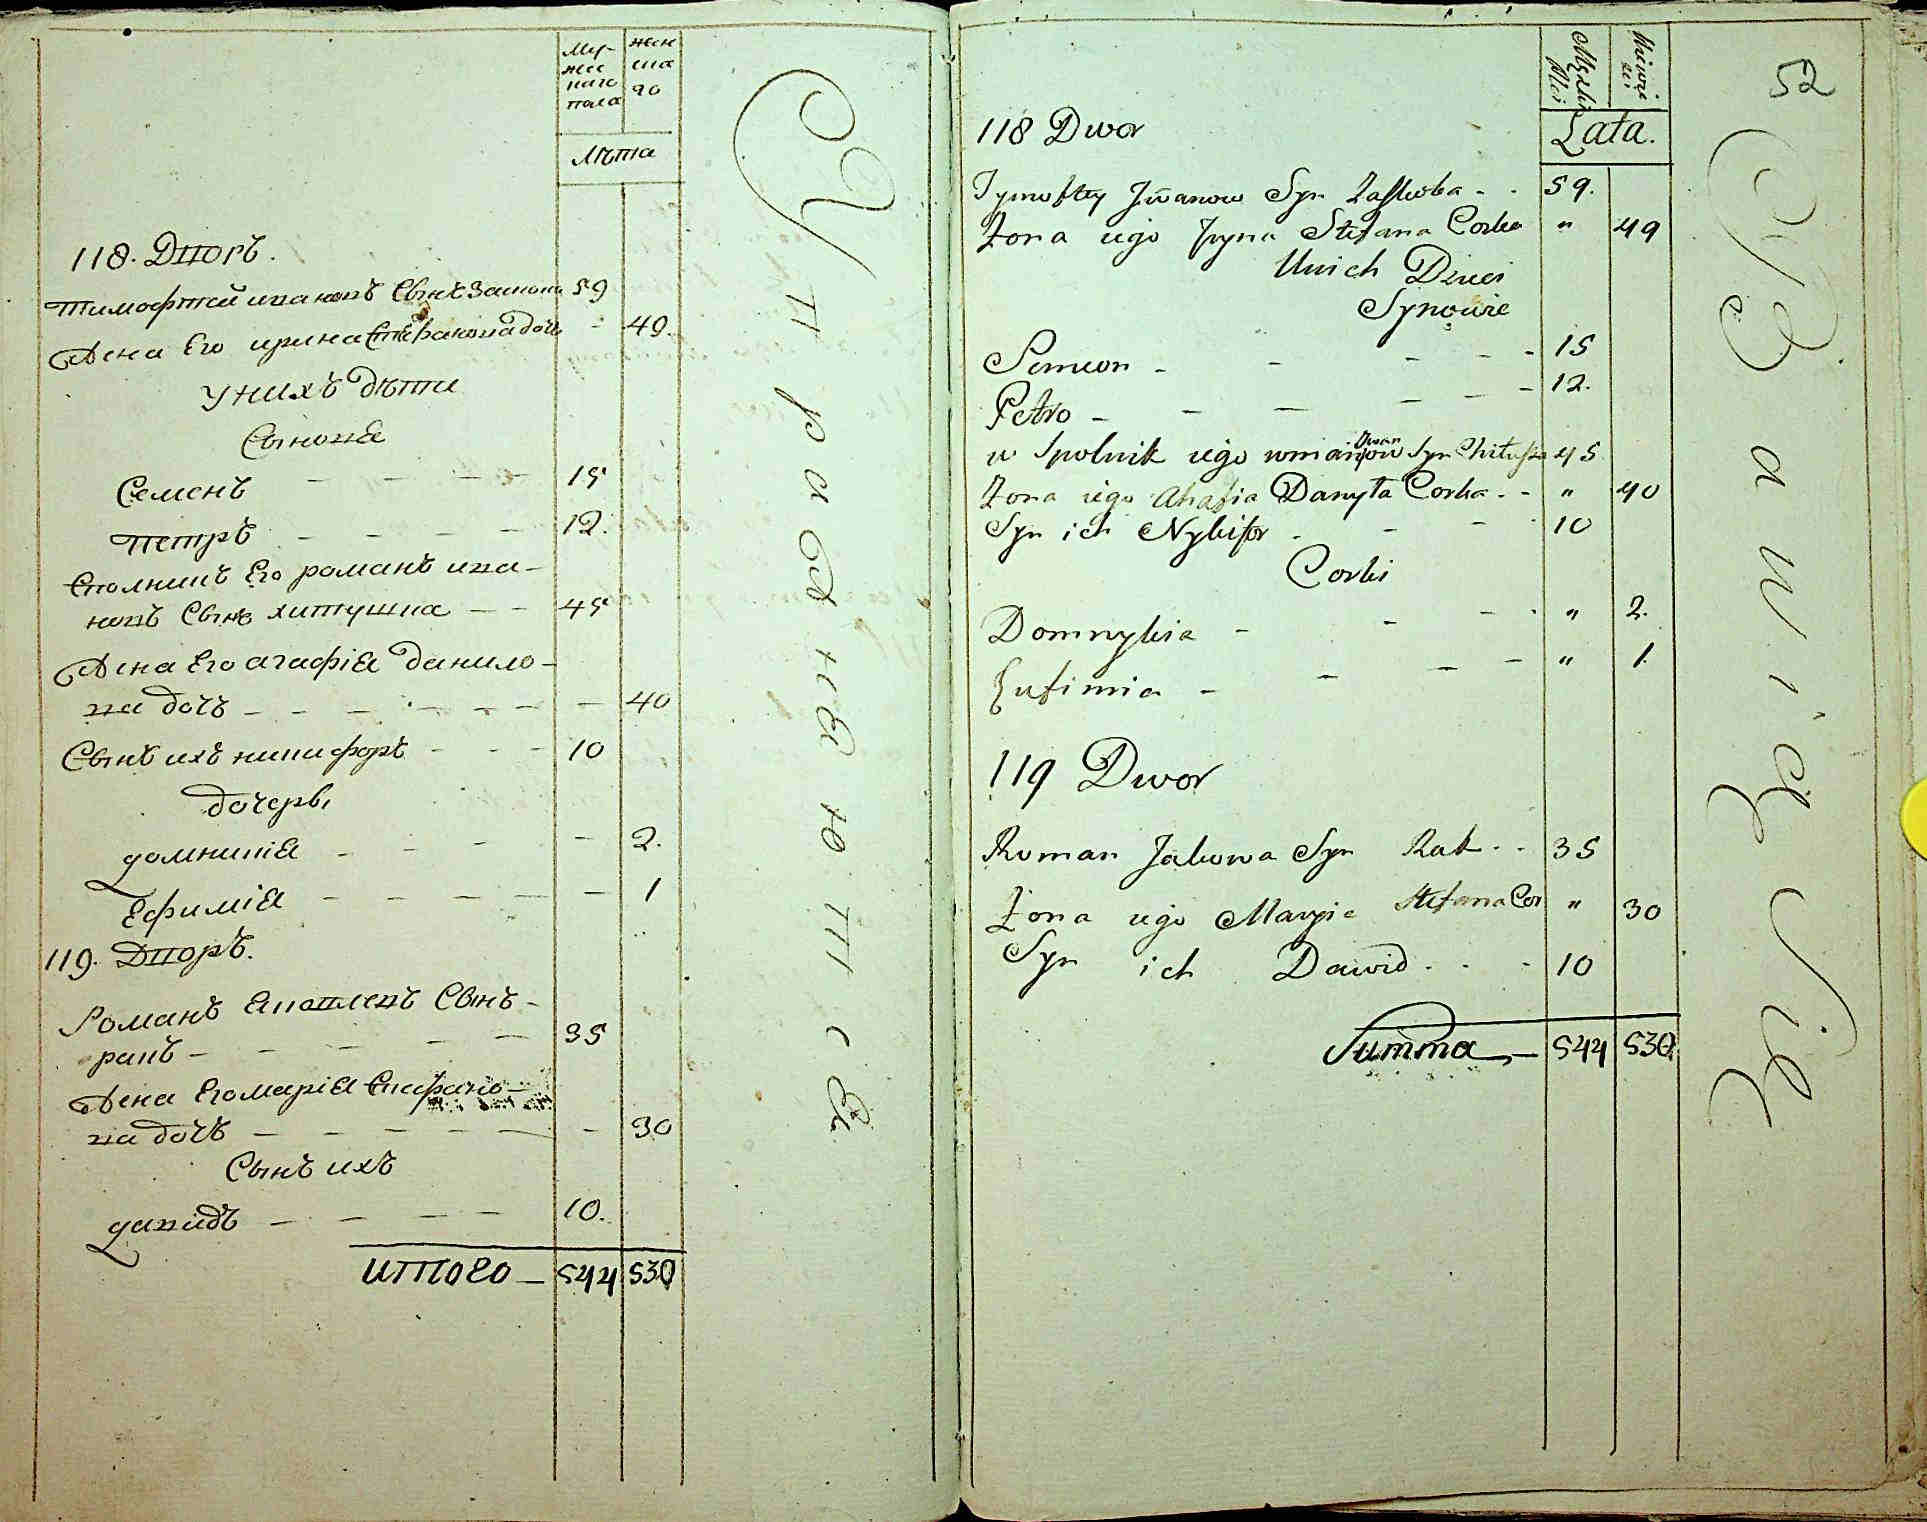 Му-
жес
каго
пола
жен
ска
го
лѣта
118. Дворъ.
тимофтей ивановъ Сынъ
59
Жена Его ирина Стефанова дочь - 49.
У нихъ дѣти
Сыновя
Семенъ - - - - 15
петръ - - - - 12.
Сполникъ Его романъ ива-
новъ Сынъ хитушка - - 45
Жена Его агафія данило-
ва дочъ - - - - - - - 40
Сынъ ихъ никифоръ - - - 10
дочеры
домникія - - - - - 2.
Ефимія - - - - - - 1
119. Дворъ.
Романъ Яковлевъ Сынъ -
ракъ - - - - - 35
Жена Его марія Стефано-
ва дочъ - - - - - - 30
Сынъ ихъ
давидъ - - - - 10.
итого - 544 530
У правляются
52
Męzkiey
Płci
Lata.
118 Dwor
Tymoftey Jwanow Syn - - 59.
Żona iego Jryna Stefana Corka " 49
U nich Dzieci
Synowie
Semeon - - - - - 15
Petro - - - - - - 12.
Żona iego Ahafia Danyła Corka - - " 40
Syn ich Nykifor - - - 10
Corki
Domnykia - - - - " 2.
Eufimia - - - - " 1.
119 Dwor
Roman Jakowa Syn Rak - - 35
Żona iego Maryia Stefana Cor " 30
Syn ich Dawid - - - 10
Summa - 544 530